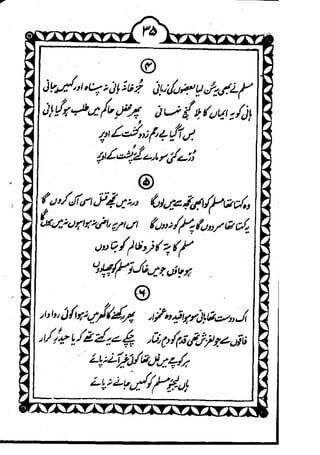 ۳۵
۴
مسلم نے بھی یہ سُن لیا بعضوں کی زبانی جُز خانۂ ہانی نہ پناہ اور کہیں جانی
ہانی کو یہ ایماں کا ملا گنج نہانی پھر محفلِ حاکم میں طلب ہو گیا ہانی
بس آگیا بے رحم زد و کشت کے اوپر
دُرّے کئی سو مارے گئے پشت کے اوپر
۵
وہ کہتا تھا مسلم کو ابھی تجھ سے میں لوں گا ورنہ میں تجھے قتل اسی آن کروں گا
یہ کہتا تھا سر دوں گا پہ مسلم کو نہ دوں گا اس امر پہ راضی نہ ہوا ہوں نہ میں ہوں گا
مسلم کا پتہ کافر و ظالم کو بتا دوں
ہو جاؤں جو میں خاک تو مسلم کو چھپا دوں
۶
اک دوست تھا ہانی سو ہوا قید وہ غمخوار پھر رکھنے کا گھر میں نہ ہوا کوئی روادار
فاقوں سے جو لغزش تھی قدم کو دمِ رفتار چپکے سے یہ کہتے تھے کہ یا حیدرِ کرار
ہر کوچے میں غل تھا کوئی غیر آنے نہ پائے
ہاں لیجیو مسلم کو کہیں جانے نہ پائے